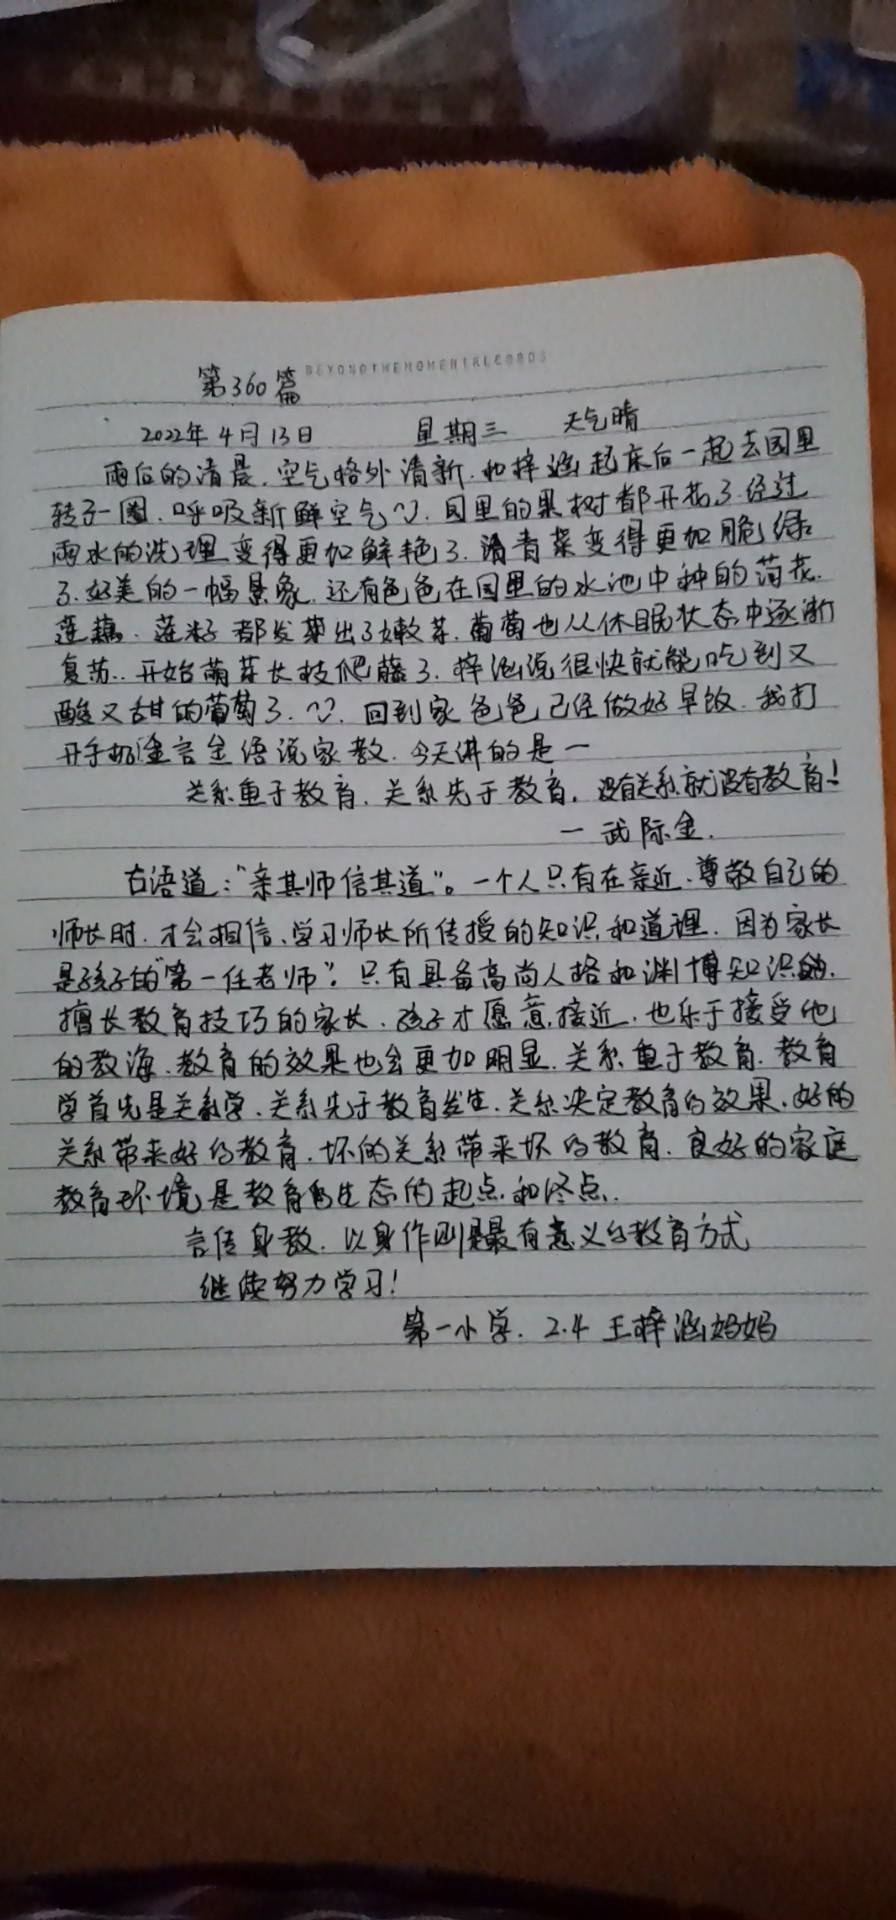 BEYONDTHEMOMENTRECORDS
第360篇
2022年4月13日 星期三 天气晴
雨后的清晨.空气格外清新.和梓涵起床后一起去园里
转了一圈.呼吸新鲜空气.园里的果树都开花了.经过
雨水的洗理变得更加鲜艳了.青菜变得更加脆绿
了.好美的一幅景象.还有爸爸在园里的水池中种的荷花.
莲藕.莲籽都发芽出了嫩芽.葡萄也从休眠状态中逐渐
复苏..开始萌芽长枝爬藤了.梓涵说很快就能吃到又
酸又甜的葡萄了.回到家爸爸已经做好早饭.我打
开手机金言金语说家教.今天讲的是一
关系重于教育.关系先于教育.没有关系就没有教育!
一武际金.
古语道:“亲其师信其道”。一个人只有在亲近、尊敬自己的
师长时.才会相信、学习师长所传授的知识和道理.因为家长
是孩子的“第一任老师”.只有具备高尚人格和渊博知识的.
擅长教育技巧的家长.孩子才愿意接近.也乐于接受他
的教海.教育的效果也会更加明显.关系重于教育.教育
学首先是关系学.关系先于教育发生.关系决定教育的效果.好的
关系带来好的教育.坏的关系带来坏的教育.良好的家庭
教育环境是教育的生态的起点和终点.
言传身教.以身作则是最有意义的教育方式
继续努力学习!
第一小学.2.4 王梓涵妈妈